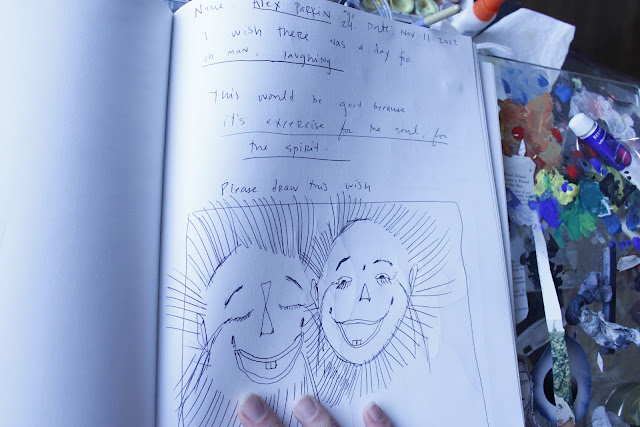 Name Alex Parkin age 24. Date: Nov 11 2012
I wish there was a day for
oh man. laughing
This would be good because
it's exercise for the soul. for
the spirit.
Please draw this wish